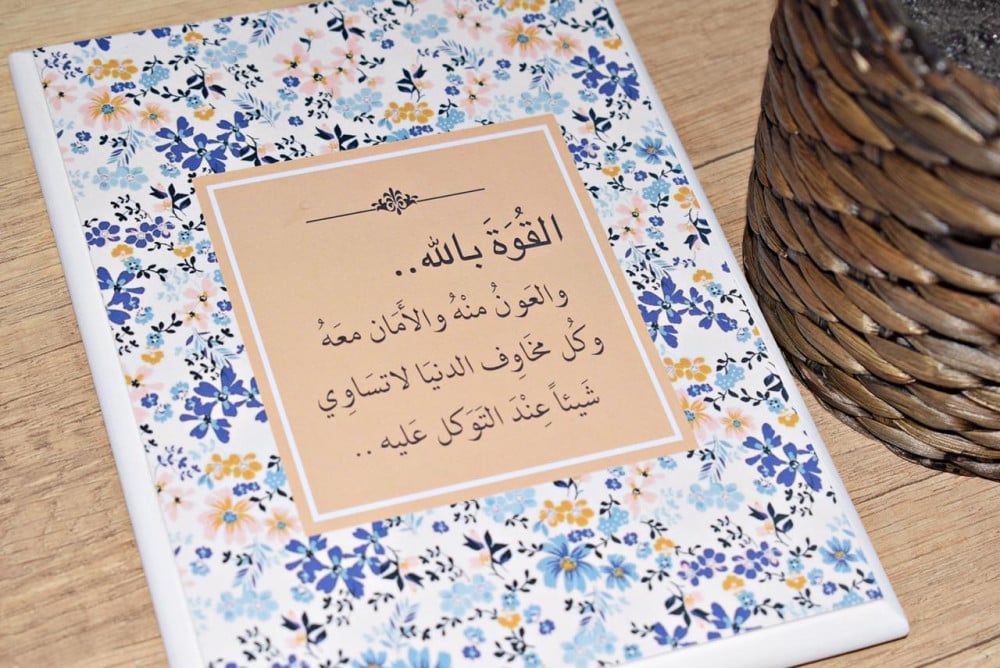 القُوَةَ بالله..
والعَونُ منْهُ والأَمَان معَهُ
وكُل مخَاوِف الدنيَا لاتسَاوِي
شَيئاً عِنْدَ التوَكل عَليه ..